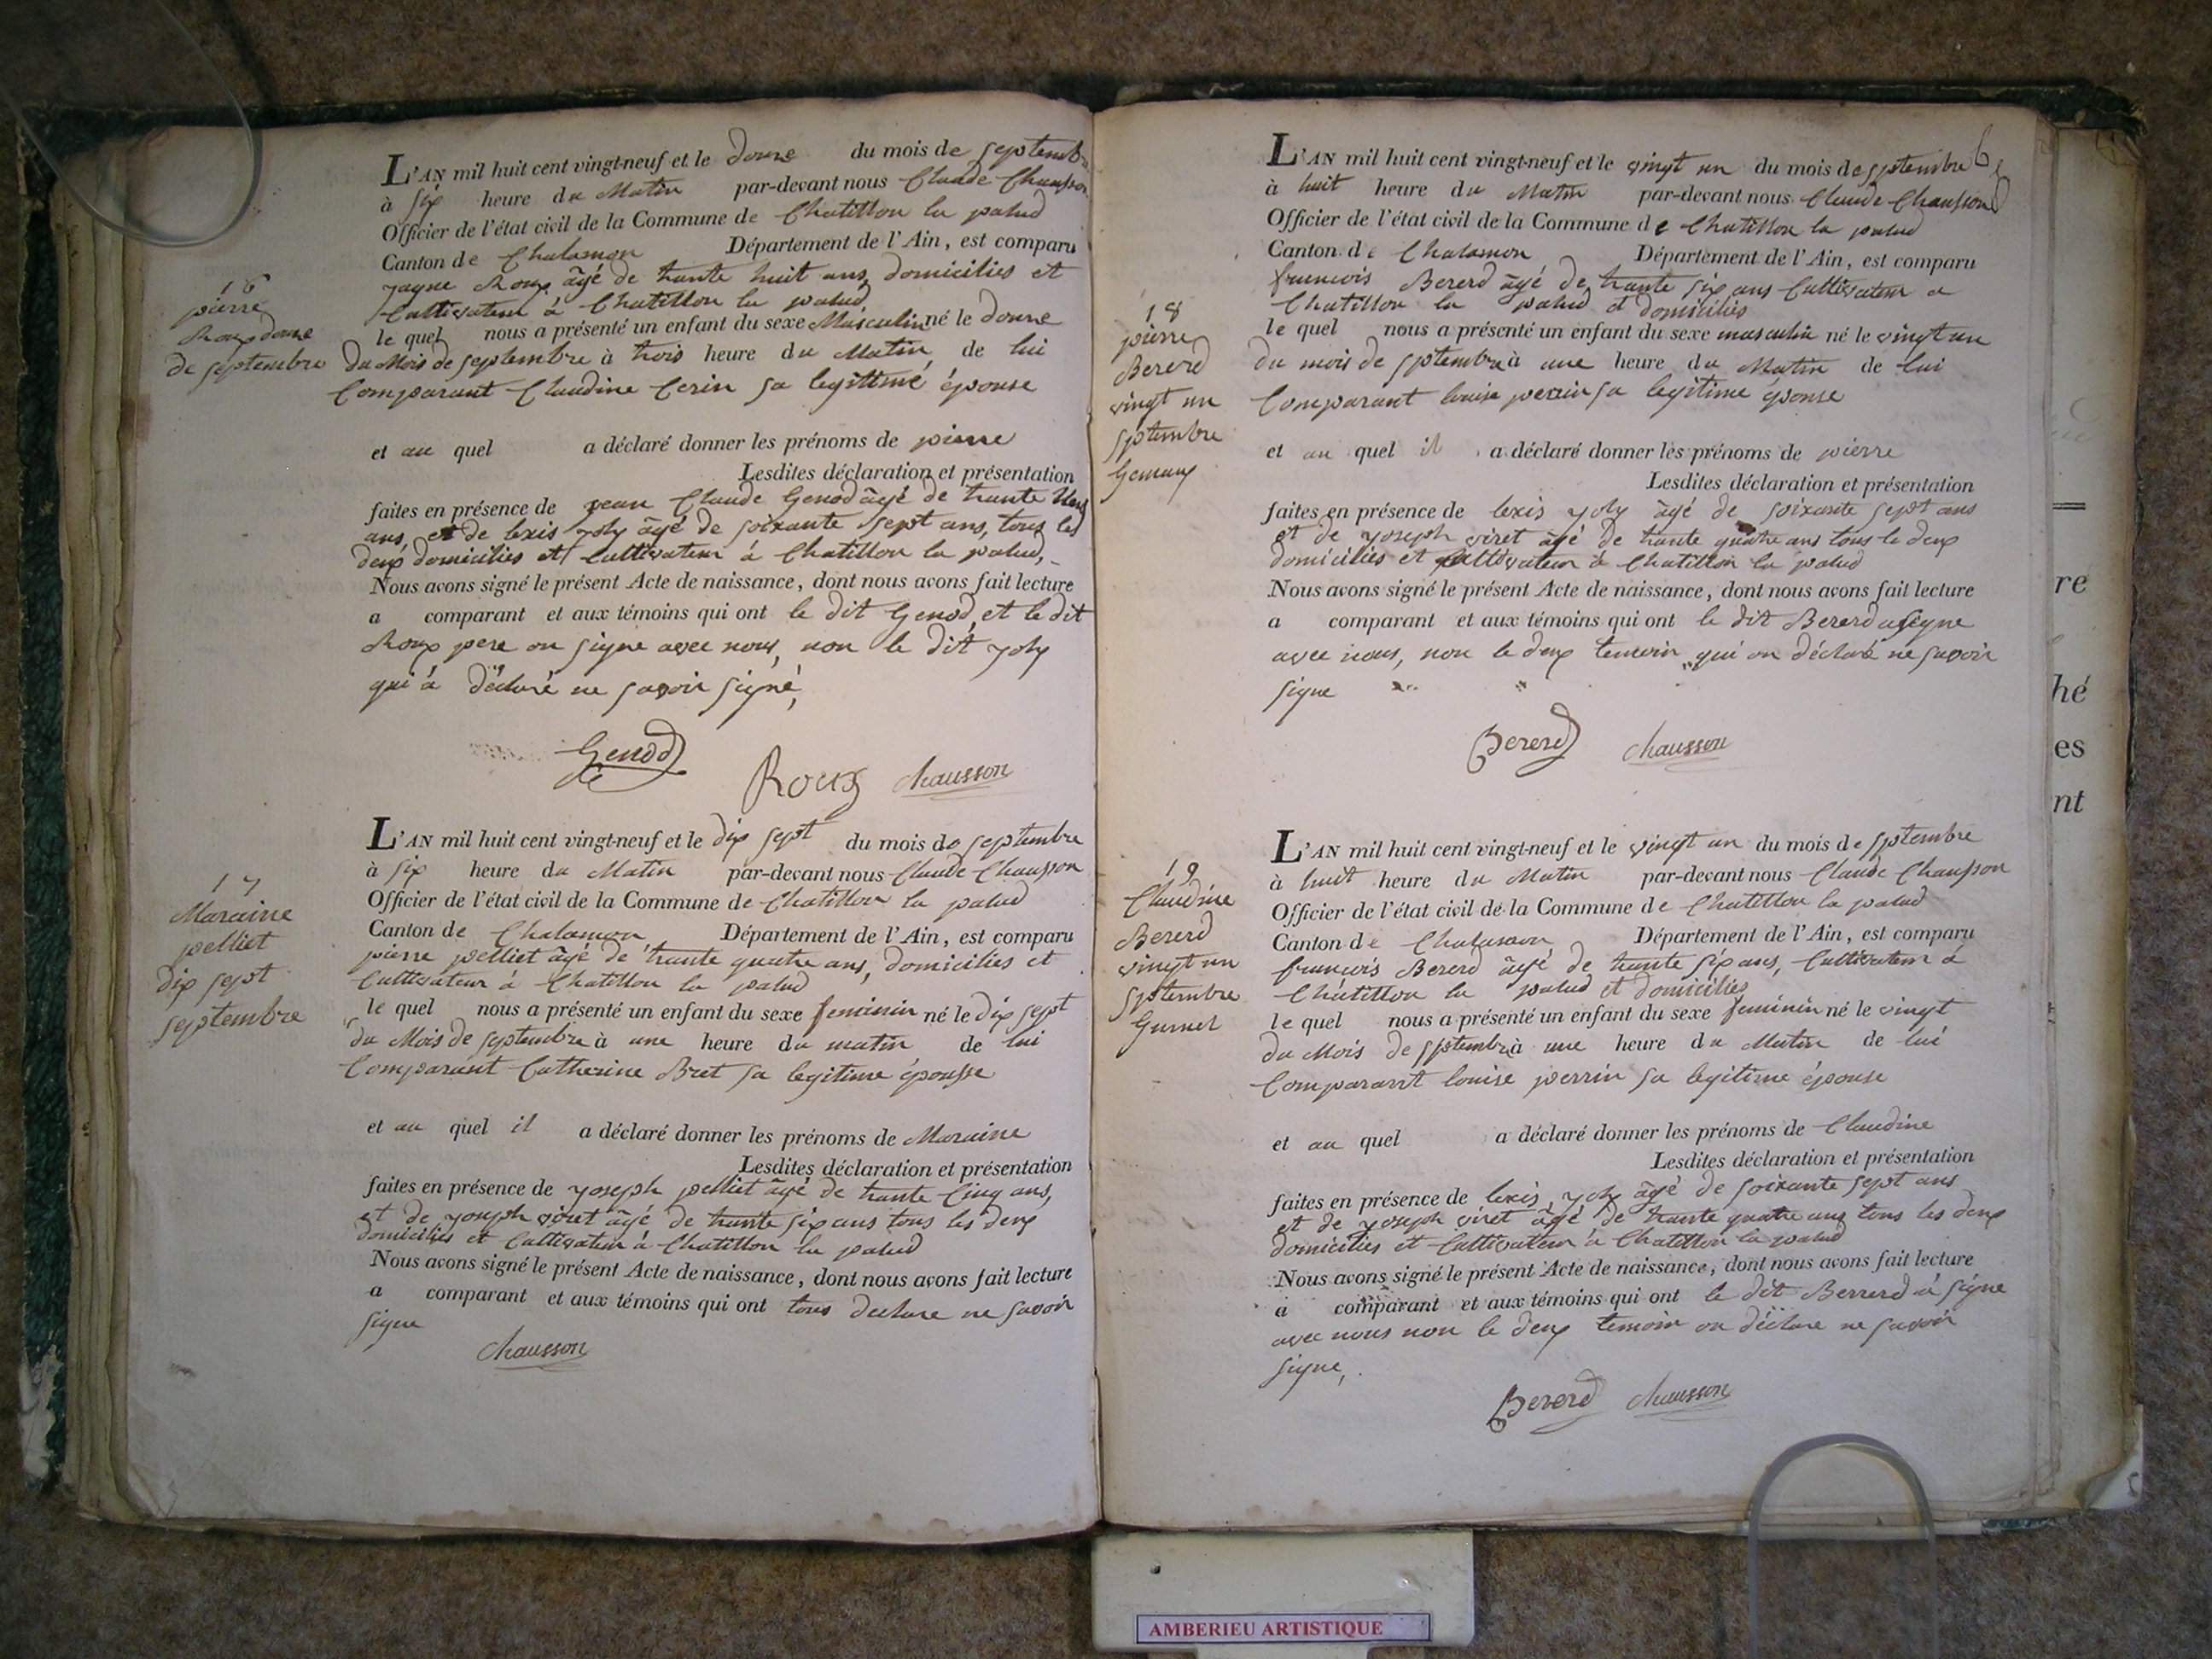 16
pierre
Roux douze
de septembre
L'AN mil huit cent vingt-neuf et le douze du mois de septembre
à six heure du Matin par-devant nous Claude Chausson
Officier de l'état civil de la Commune de Chatillon la palud
Canton de Chalamon Département de l'Ain, est comparu
Roux âgé de trante huit ans, domicilies et
Cultivateur à Chatillon la palud
le quel nous a présenté un enfant du sexe Masculin né le douze
du Mois de septembre à trois heure du Matin, de lui
Comparant Claudine Cerin sa legittime épouse
et au quel a déclaré donner les prénoms de pierre
Lesdites déclaration et présentation
faites en présence de jean Claude Genod âgé de trante
ans, et de lexis joly âgé de soixante sept ans, tous les
deux domicilies et Cultivateur à Chatillon la palud,
Nous avons signé le présent Acte de naissance, dont nous avons fait lecture
a comparant et aux témoins qui ont le dit Genod, et le dit
Roux pere on signe avec nous, non le dit joly
qui à déclaré ne savoir signé,
Genod
Roux chausson
17
Maraine
pelliet
dix sept
septembre
L'AN mil huit cent vingt-neuf et le dix sept du mois de septembre
à six heure du Matin par-devant nous Claude Chausson
Officier de l'état civil de la Commune de Chatillon la palud
Canton de Chalamon Département de l'Ain, est comparu
pierre pelliet âgé de trante quatre ans, domicilies et
Cultivateur à Chatillon la palud
le quel nous a présenté un enfant du sexe feminin né le dix sept
du Mois de septembre à une heure du matin de lui
Comparant Catherine Bret sa legitime épousse
et au quel il a déclaré donner les prénoms de Maraine
Lesdites déclaration et présentation
faites en présence de joseph pelliet âgé de trante Cinq ans,
et de joseph viret âgé de trante six ans tous les deux
domicilies et Cultivateur à Chatillon la palud
Nous avons signé le présent Acte de naissance, dont nous avons fait lecture
a comparant et aux témoins qui ont tous declare ne savoir
signe
chausson
6
18
pierre
Bererd
vingt un
sptembre
L'AN mil huit cent vingt-neuf et le vingt un du mois de sptembre
à huit heure du Matin par-devant nous Claude Chausson
Officier de l'état civil de la Commune de Chatillon la palud
Canton de Chalamon Département de l'Ain, est comparu
francois Bererd âgé de trante six ans Cultivateur a
Chatillon la palud et domicilies
le quel nous a présenté un enfant du sexe masculin né le vingt un
du mois de sptembre à une heure du Matin de lui
Comparant louise perrin sa legitime épouse
et au quel il a déclaré donner les prénoms de pierre
Lesdites déclaration et présentation
faites en présence de lexis joly âgé de soixante sept ans
et de joseph viret âgé de trante quatre ans tous le deux
domicilies et Cultivateur à Chatillon la palud
Nous avons signé le présent Acte de naissance, dont nous avons fait lecture
a comparant et aux témoins qui ont le dit Bererd a signe
avec nous, non le deux temoin qui on déclaré ne savoir
signe
Bererd chausson
19
Claudine
Bererd
vingt un
sptembre
L'AN mil huit cent vingt-neuf et le vingt un du mois de sptembre
à huit heure du Matin par-devant nous Claude Chausson
Officier de l'état civil de la Commune de Chatillon la palud
Canton de Chalamon Département de l'Ain, est comparu
francois Bererd âgé de trante six ans, Cultivateur à
Chatillon la palud et domicilies
le quel nous a présenté un enfant du sexe feminin né le vingt
du Mois de sptembre à une heure du Matin de lui
Comparant louise perrin sa legitime épouse
et au quel a déclaré donner les prénoms de Claudine
Lesdites déclaration et présentation
faites en présence de lexis joly âgé de soixante sept ans
et de joseph viret âgé de trante quatre ans tous les deux
domicilies et Cultivateur à Chatillon la palud
Nous avons signé le présent Acte de naissance, dont nous avons fait lecture
a comparant et aux témoins qui ont le dit Berrerd à signe
avec nous non le deux temoin on déclare ne savoir
signe,
Bererd chausson
re
hé
es
nt
AMBERIEU ARTISTIQUE